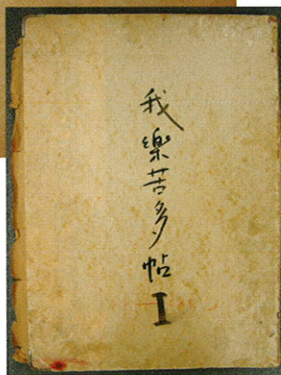 我樂苦多帖 I